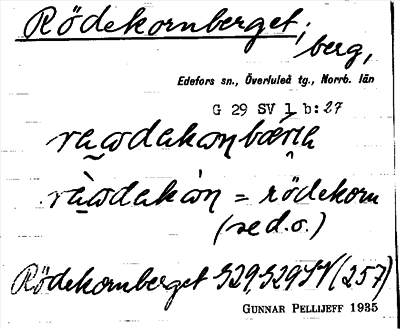 Rödekornberget;
berg,
Edefors sn., Överluleå tg., Norrb. län
G 29 SV 1 b:27
= rödekorn
(se d.o.)
Rödekornberget S29, S29SV (257)
GUNNAR PELLIJEFF 1935